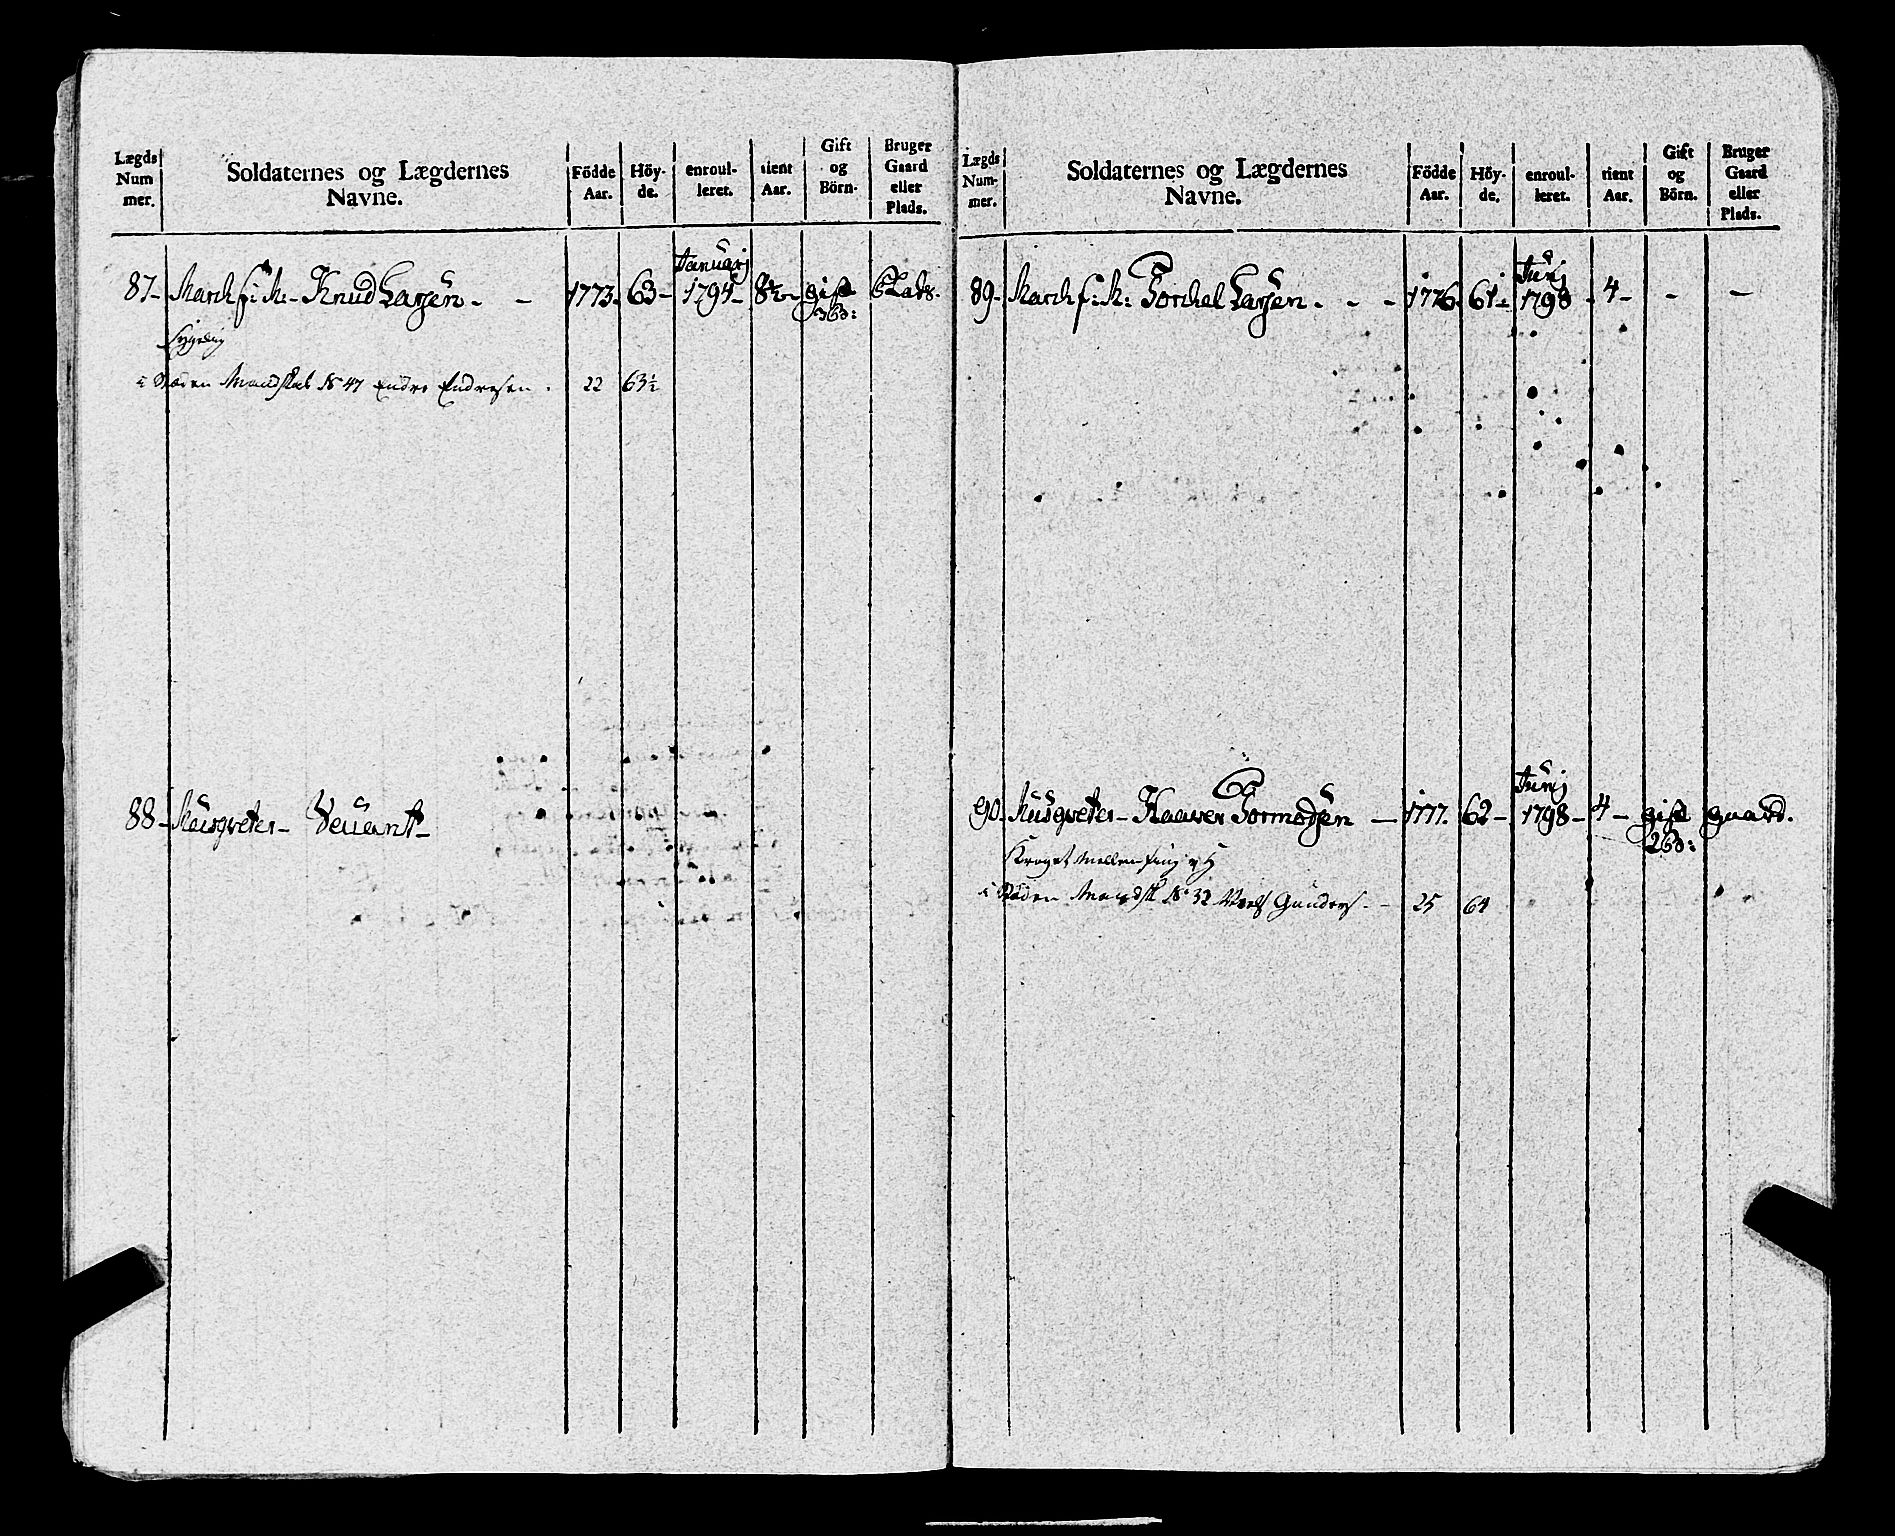 Lægds Num mer. | Soldaternes og Lægdernes Navne. | Födde Aar. | Höy- de. | enroul- leret. | tient Aar. | Gift og Börn. | Bruger Gaard eller Plads.
87- Knud Larsen - - 1773. 63- Januarj 1794- 8½- gift 3 b: Plads.
Sygelig
i Støden Mandskab No 47 Endre Endresen . 22 63½
88- Musqveter- Vacant-
Lægds Num- mer. | Soldaternes og Lægdernes Navne. | Födde Aar. | Höy- de. | enroul- leret. | tient Aar. | Gift og Börn. | Bruger Gaard eller Plads.
89- Torchel Larsen . - - 1776. 61- Junj 1798 - 4- - -
90- Musqveter- Haaver Tormodsen - 1777. 62- Junj 1798- 4- gift 2 b: gaard.
No 32 Gunders. - 25 64